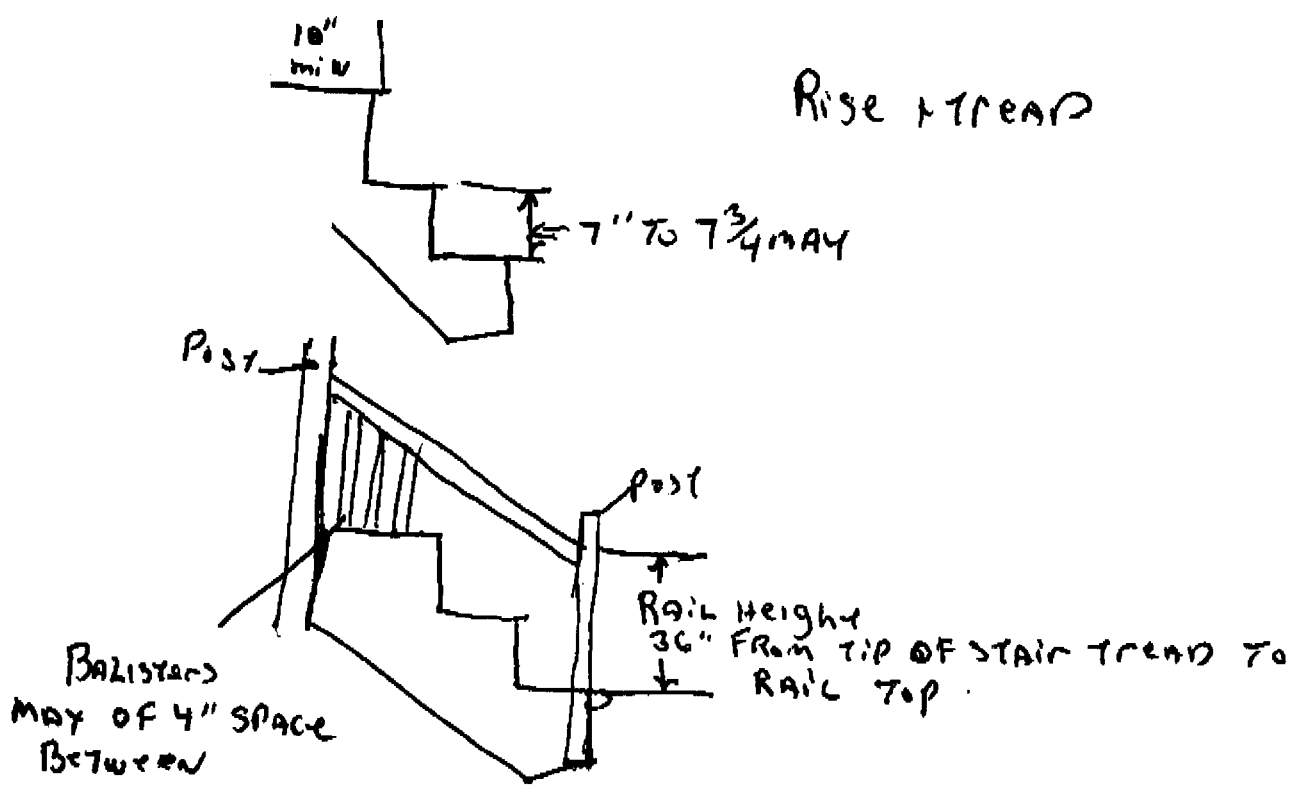 10"
min
Rise + Tread
7" To 7 3/4 MAX
Post
Post
Rail Height
36" From Tip of Stair Tread To
Rail Top.
Balisters
Max of 4" Space
Between